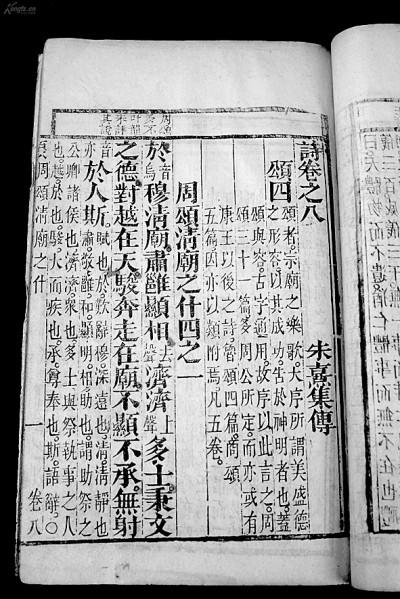 詩卷之八 朱熹集傳
頌四 頌者宗廟之樂歌大序所謂美盛德
之形容以其成功告於神明者也蓋
頌與容古字通用故序以此言之周
頌三十一篇多周公所定而亦或有
康王以後之詩魯頌四篇商頌
五篇因亦以類附焉凡五卷
周頌清廟之什四之一
周頌
多不
叶韻
未詳
其說
於音烏穆清廟肅雝顯相去聲濟濟上聲多士秉文
之德對越在天駿奔走在廟不顯不承無射音
亦於人斯賦也於歎辭穆深遠也清清靜也
肅敬雝和顯明相助也謂助祭之
公卿諸侯也濟濟衆也多士與祭執事之人
也越於也駿大而疾也承尊奉也斯語辭○
詩周頌清廟之什 一 卷八
曰天體物而不遺猶仁體事而
Kongfz.cn